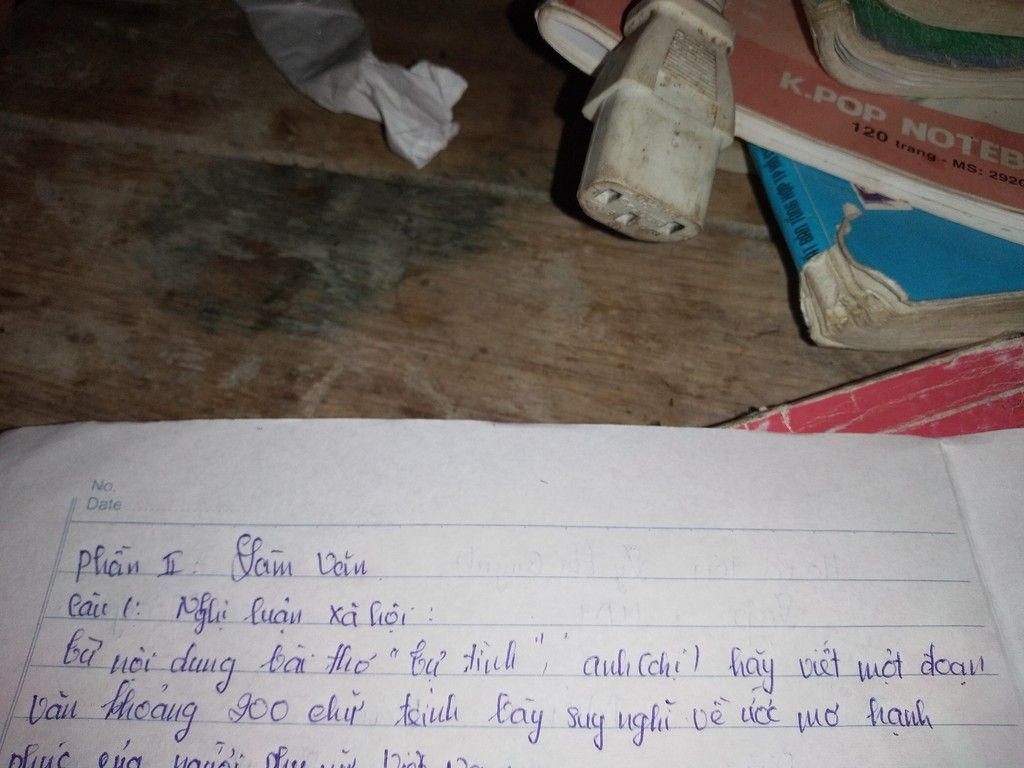 K.POP NOTEB
120 trang - MS: 2920
No.
Date
Phần II: Làm văn
Câu 1: Nghị luận xã hội:
Từ nội dung bài thơ "Tự tình", anh (chị) hãy viết một đoạn
văn khoảng 200 chữ trình bày suy nghĩ về ước mơ hạnh
phúc của người phụ nữ